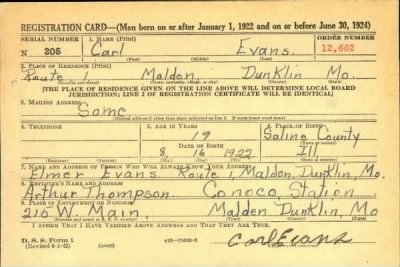 REGISTRATION CARD—(Men born on or after January 1, 1922 and on or before June 30, 1924)
SERIAL NUMBER 1. NAME (Print) ORDER NUMBER
N 205 Carl Evans. 12,662
(First) (Middle) (Last)
2. PLACE OF RESIDENCE (Print)
Route 1 Malden, Dunklin Mo.
(THE PLACE OF RESIDENCE GIVEN ON THE LINE ABOVE WILL DETERMINE LOCAL BOARD
JURISDICTION; LINE 2 OF REGISTRATION CERTIFICATE WILL BE IDENTICAL)
3. MAILING ADDRESS
Same
4. TELEPHONE 5. AGE IN YEARS 6. PLACE OF BIRTH
19 Saline County
DATE OF BIRTH
8 16 1922 Ill
7. NAME AND ADDRESS OF PERSON WHO WILL ALWAYS KNOW YOUR ADDRESS
Elmer Evans Route 1, Malden, Dunklin, Mo.
8. EMPLOYER'S NAME AND ADDRESS
Arthur Thompson Conoco Station
9. PLACE OF EMPLOYMENT OR BUSINESS
215 W. Main, Malden Dunklin, Mo
I AFFIRM THAT I HAVE VERIFIED ABOVE ANSWERS AND THAT THEY ARE TRUE.
D. S. S. Form 1
Carl Evans